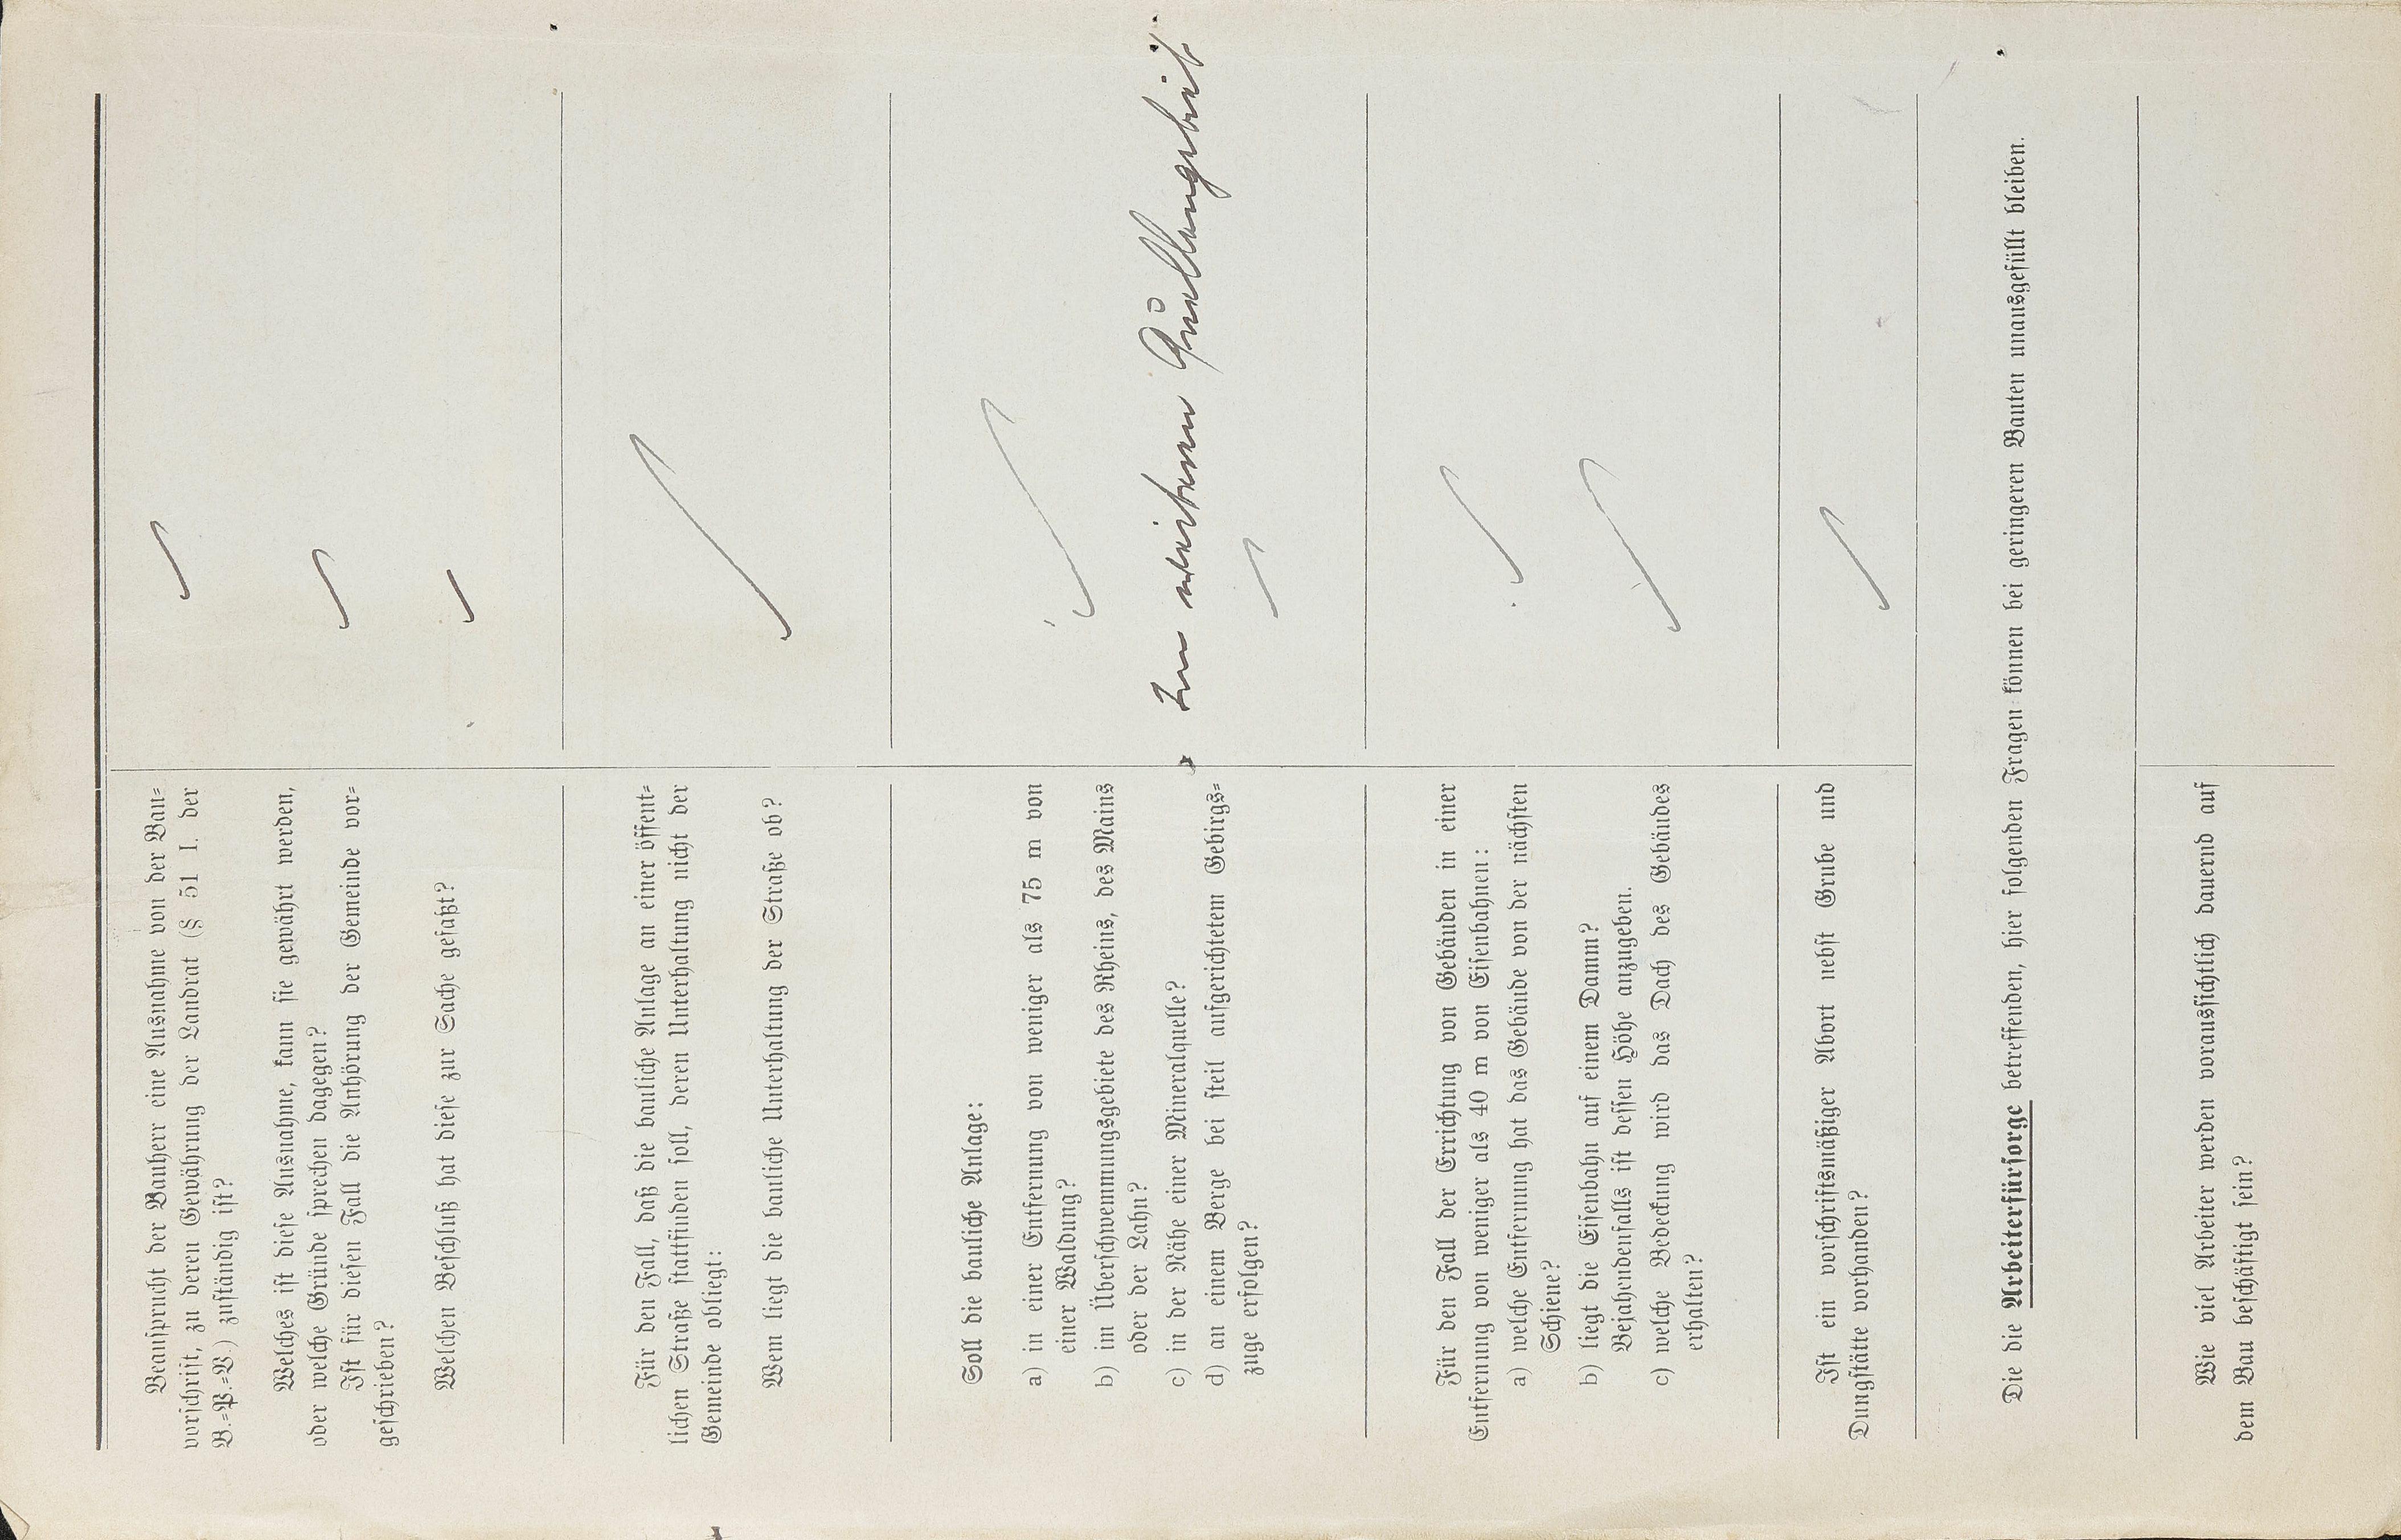 Beansprucht der Bauherr eine Ausnahme von der Bau-
vorschrift, zu deren Gewährung der Landrat (§ 51 I. der
B.-P.-V.) zuständig ist?
Welches ist diese Ausnahme, kann sie gewährt werden,
oder welche Gründe sprechen dagegen?
Ist für diesen Fall die Anhörung der Gemeinde vor-
geschrieben?
Welchen Beschluß hat diese zur Sache gefaßt?
Für den Fall, daß die bauliche Anlage an einer öffent-
lichen Straße stattfinden soll, deren Unterhaltung nicht der
Gemeinde obliegt:
Wem liegt die bauliche Unterhaltung der Straße ob?
Soll die bauliche Anlage:
a) in einer Entfernung von weniger als 75 m von
einer Waldung?
b) im Überschwemmungsgebiete des Rheins, des Mains
oder der Lahn?
c) in der Nähe einer Mineralquelle?
Im weiteren Quellengebiet
d) an einem Berge bei steil aufgerichtetem Gebirgs-
zuge erfolgen?
Für den Fall der Errichtung von Gebäuden in einer
Entfernung von weniger als 40 m von Eisenbahnen:
a) welche Entfernung hat das Gebäude von der nächsten
Schiene?
b) liegt die Eisenbahn auf einem Damm?
Bejahendenfalls ist dessen Höhe anzugeben.
c) welche Bedeckung wird das Dach des Gebäudes
erhalten?
Ist ein vorschriftsmäßiger Abort nebst Grube und
Dungstätte vorhanden?
Die die Arbeiterfürsorge betreffenden, hier folgenden Fragen können bei geringeren Bauten unausgefüllt bleiben.
Wie viel Arbeiter werden voraussichtlich dauernd auf
dem Bau beschäftigt sein?